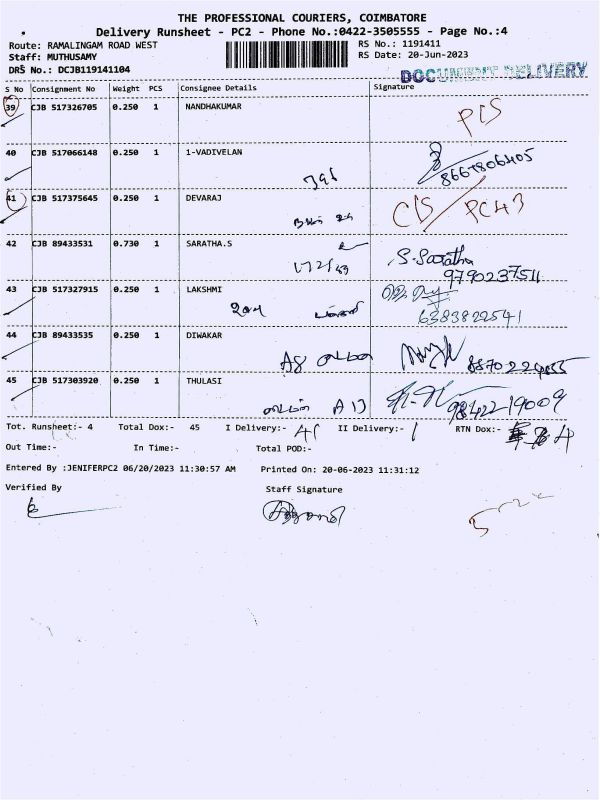 THE PROFESSIONAL COURIERS, COIMBATORE
Delivery Runsheet - PC2 - Phone No.:0422-3505555 - Page No.:4
Route: RAMALINGAM ROAD WEST
RS No.: 1191411
Staff: MUTHUSAMY
RS Date: 20-Jun-2023
DRS No.: DCJB119141104
DOCUMENT DELIVERY
S No Consignment No Weight PCS Consignee Details Signature
39 CJB 517326705 0.250 1 NANDHAKUMAR
40 CJB 517066148 0.250 1 1-VADIVELAN
8667806405
41 CJB 517375645 0.250 1 DEVARAJ
42 CJB 89433531 0.730 1 SARATHA.S
S. Saratha
9790237511
43 CJB 517327915 0.250 1 LAKSHMI
6383822541
44 CJB 89433535 0.250 1 DIWAKAR
45 CJB 517303920 0.250 1 THULASI
9842219009
Tot. Runsheet:- 4 Total Dox:- 45 I Delivery:- 41 II Delivery:- 1 RTN Dox:- 4
Out Time:- In Time:- Total POD:-
Entered By :JENIFERPC2 06/20/2023 11:30:57 AM Printed On: 20-06-2023 11:31:12
Verified By Staff Signature